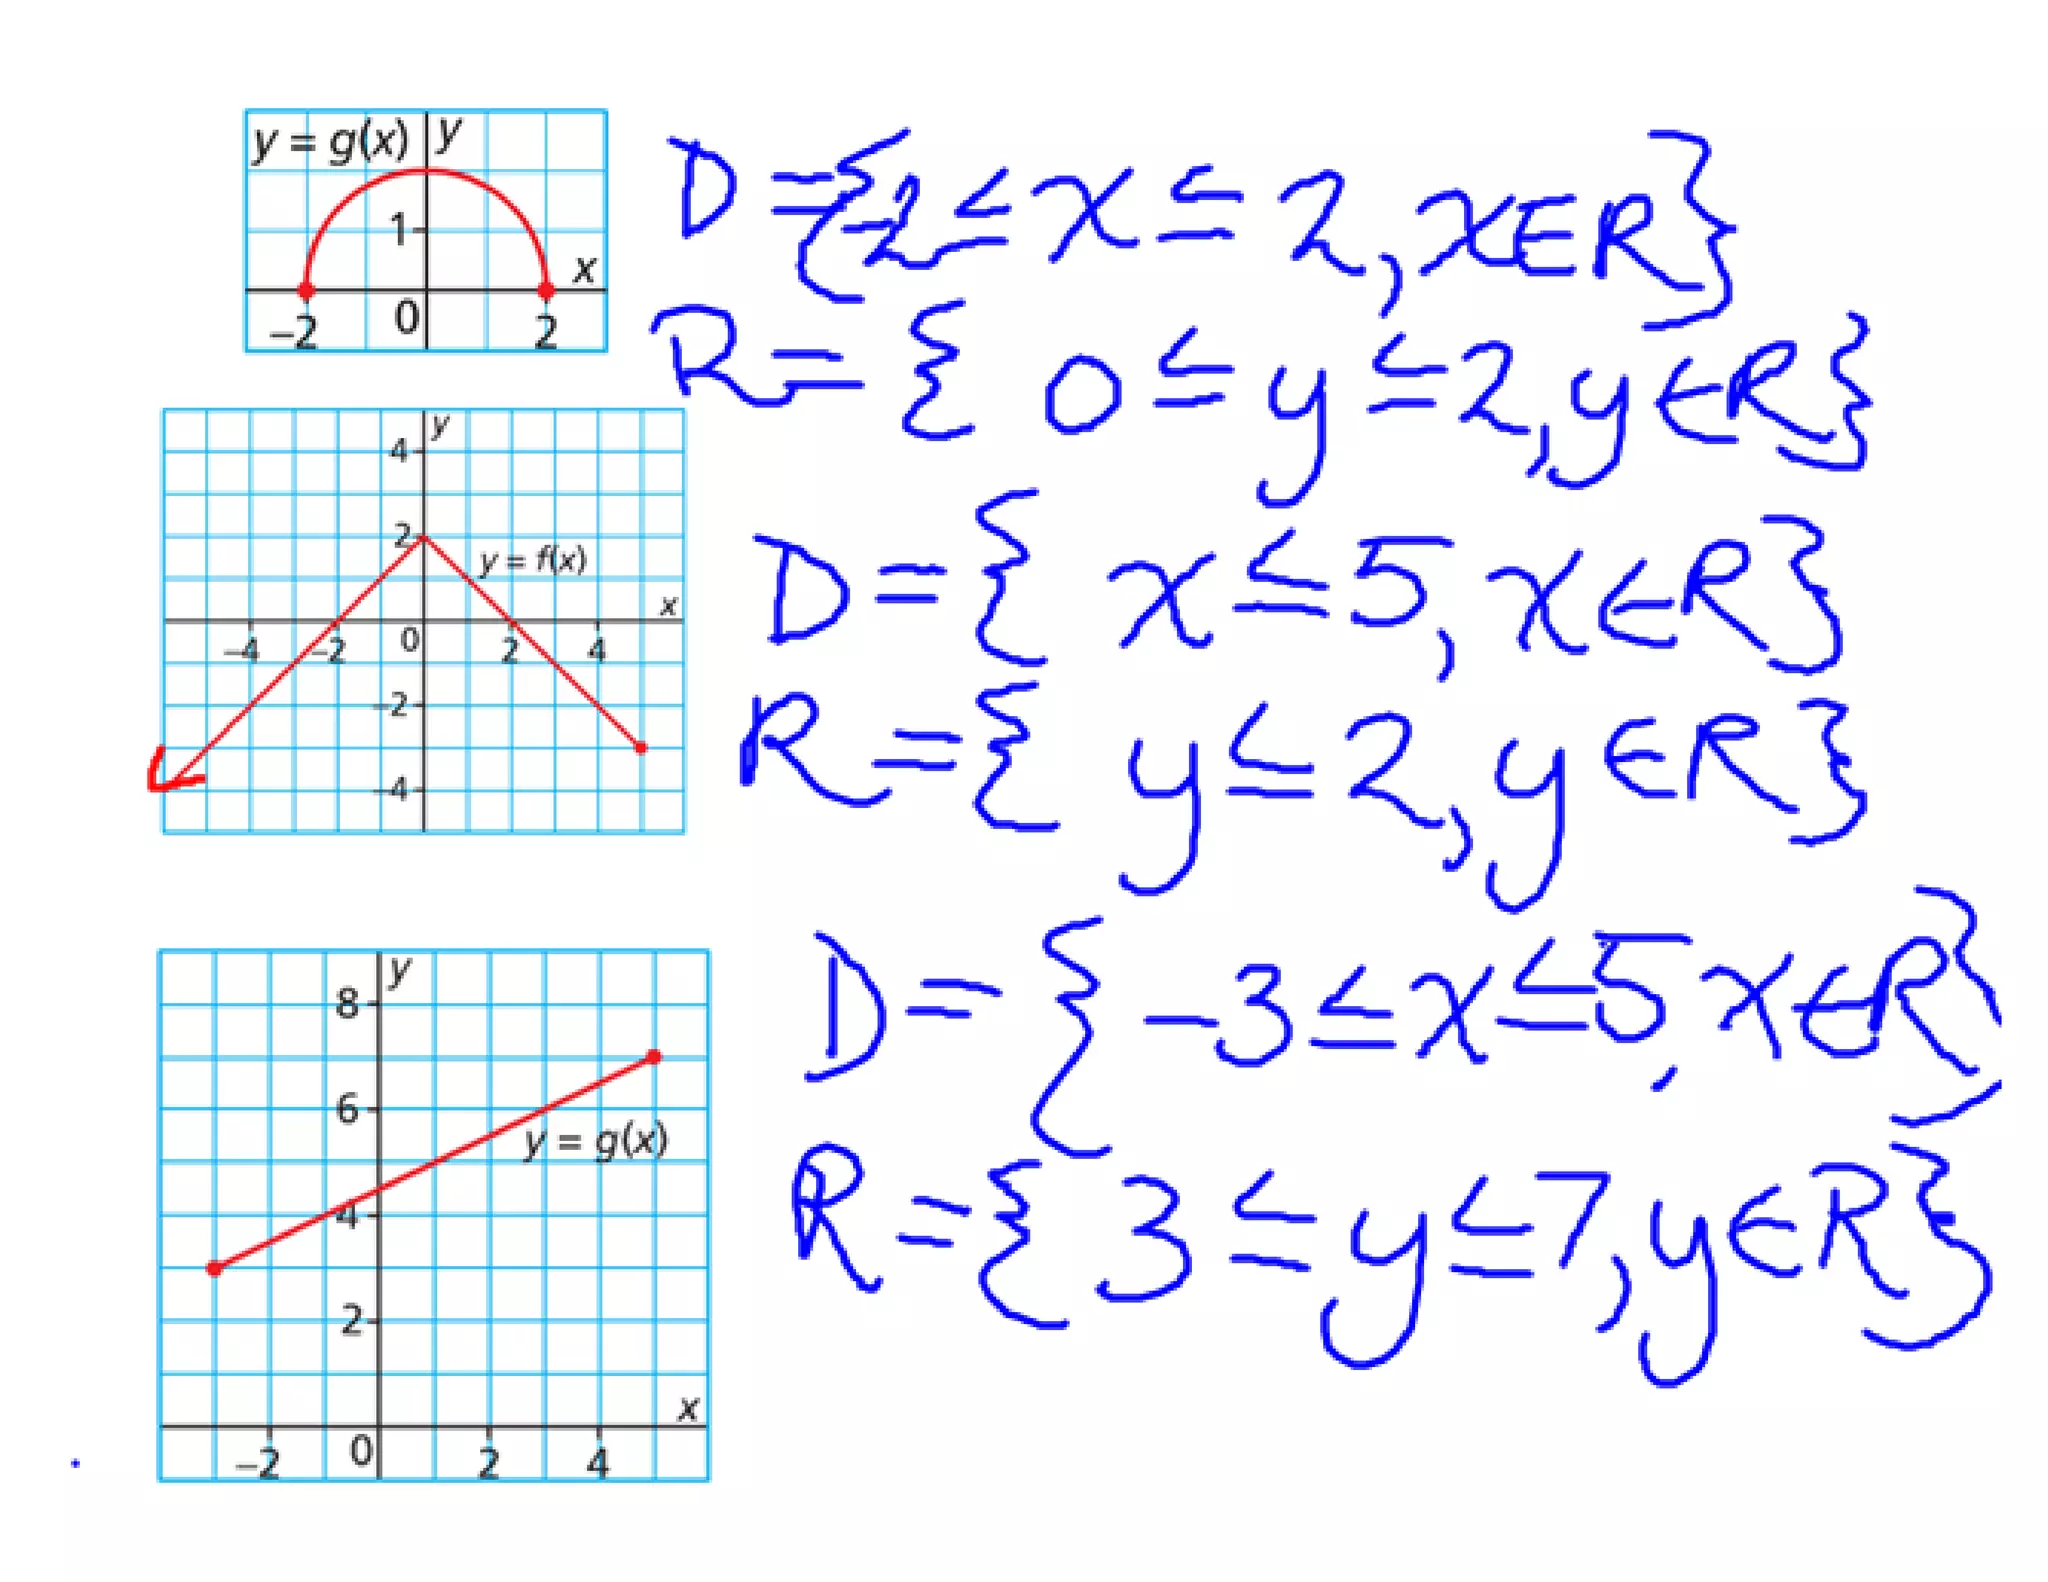 y = g(x) y
1
x
-2 0 2
D = {-2 ≤ x ≤ 2, x∈R}
R = { 0 ≤ y ≤ 2, y ∈R}
y
4
2
y = f(x)
x
-4 -2 0 2 4
-2
-4
D = { x ≤ 5, x ∈R}
R = { y ≤ 2, y ∈R}
y
8
6
y = g(x)
4
2
x
-2 0 2 4
D = { -3 ≤ x ≤ 5, x ∈R}
R = { 3 ≤ y ≤ 7, y ∈R}